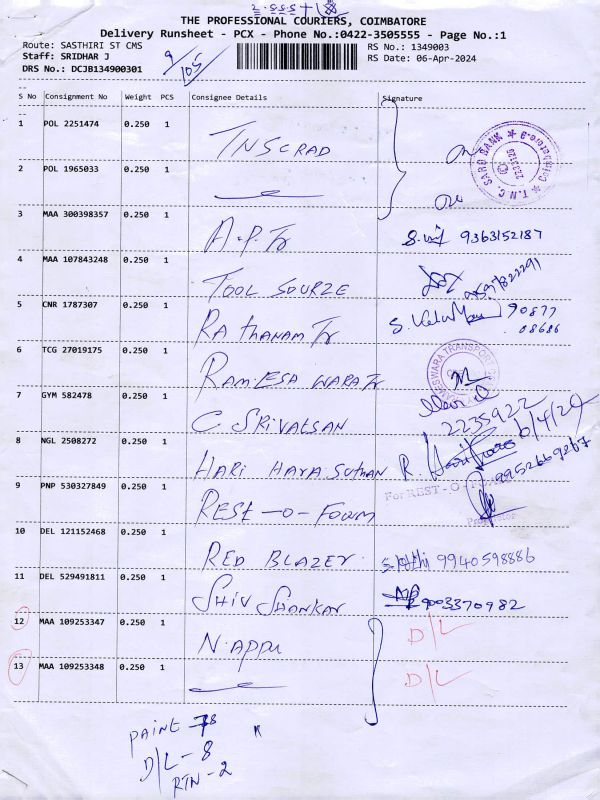 THE PROFESSIONAL COURIERS, COIMBATORE
Delivery Runsheet - PCX - Phone No.:0422-3505555 - Page No.:1
Route: SASTHIRI ST CMS
Staff: SRIDHAR J
DRS No.: DCJB134900301
9/105
RS No.: 1349003
RS Date: 06-Apr-2024
S No Consignment No Weight PCS Consignee Details Signature
1 POL 2251474 0.250 1 TNSCRAD
2 POL 1965033 0.250 1
3 MAA 300398357 0.250 1 A.P. Tr 9363152187
4 MAA 107843248 0.250 1 TOOL SOURZE
5 CNR 1787307 0.250 1 Rathanam Tr 90877 08686
6 TCG 27019175 0.250 1 RAMESA WARA Tr
7 GYM 582478 0.250 1 C SRIVATSAN 2235922
8 NGL 2508272 0.250 1 HARI HARA SUTHAN 6/4/24
9 PNP 530327849 0.250 1 REST-O-FOWM 9952669267
For REST - O -
10 DEL 121152468 0.250 1 RED BLAZER 9940598886
11 DEL 529491811 0.250 1 SHIV SHANKAR 9003370982
12 MAA 109253347 0.250 1 N. APPU D/L
13 MAA 109253348 0.250 1 D/L
D/L - 8
RTN - 2